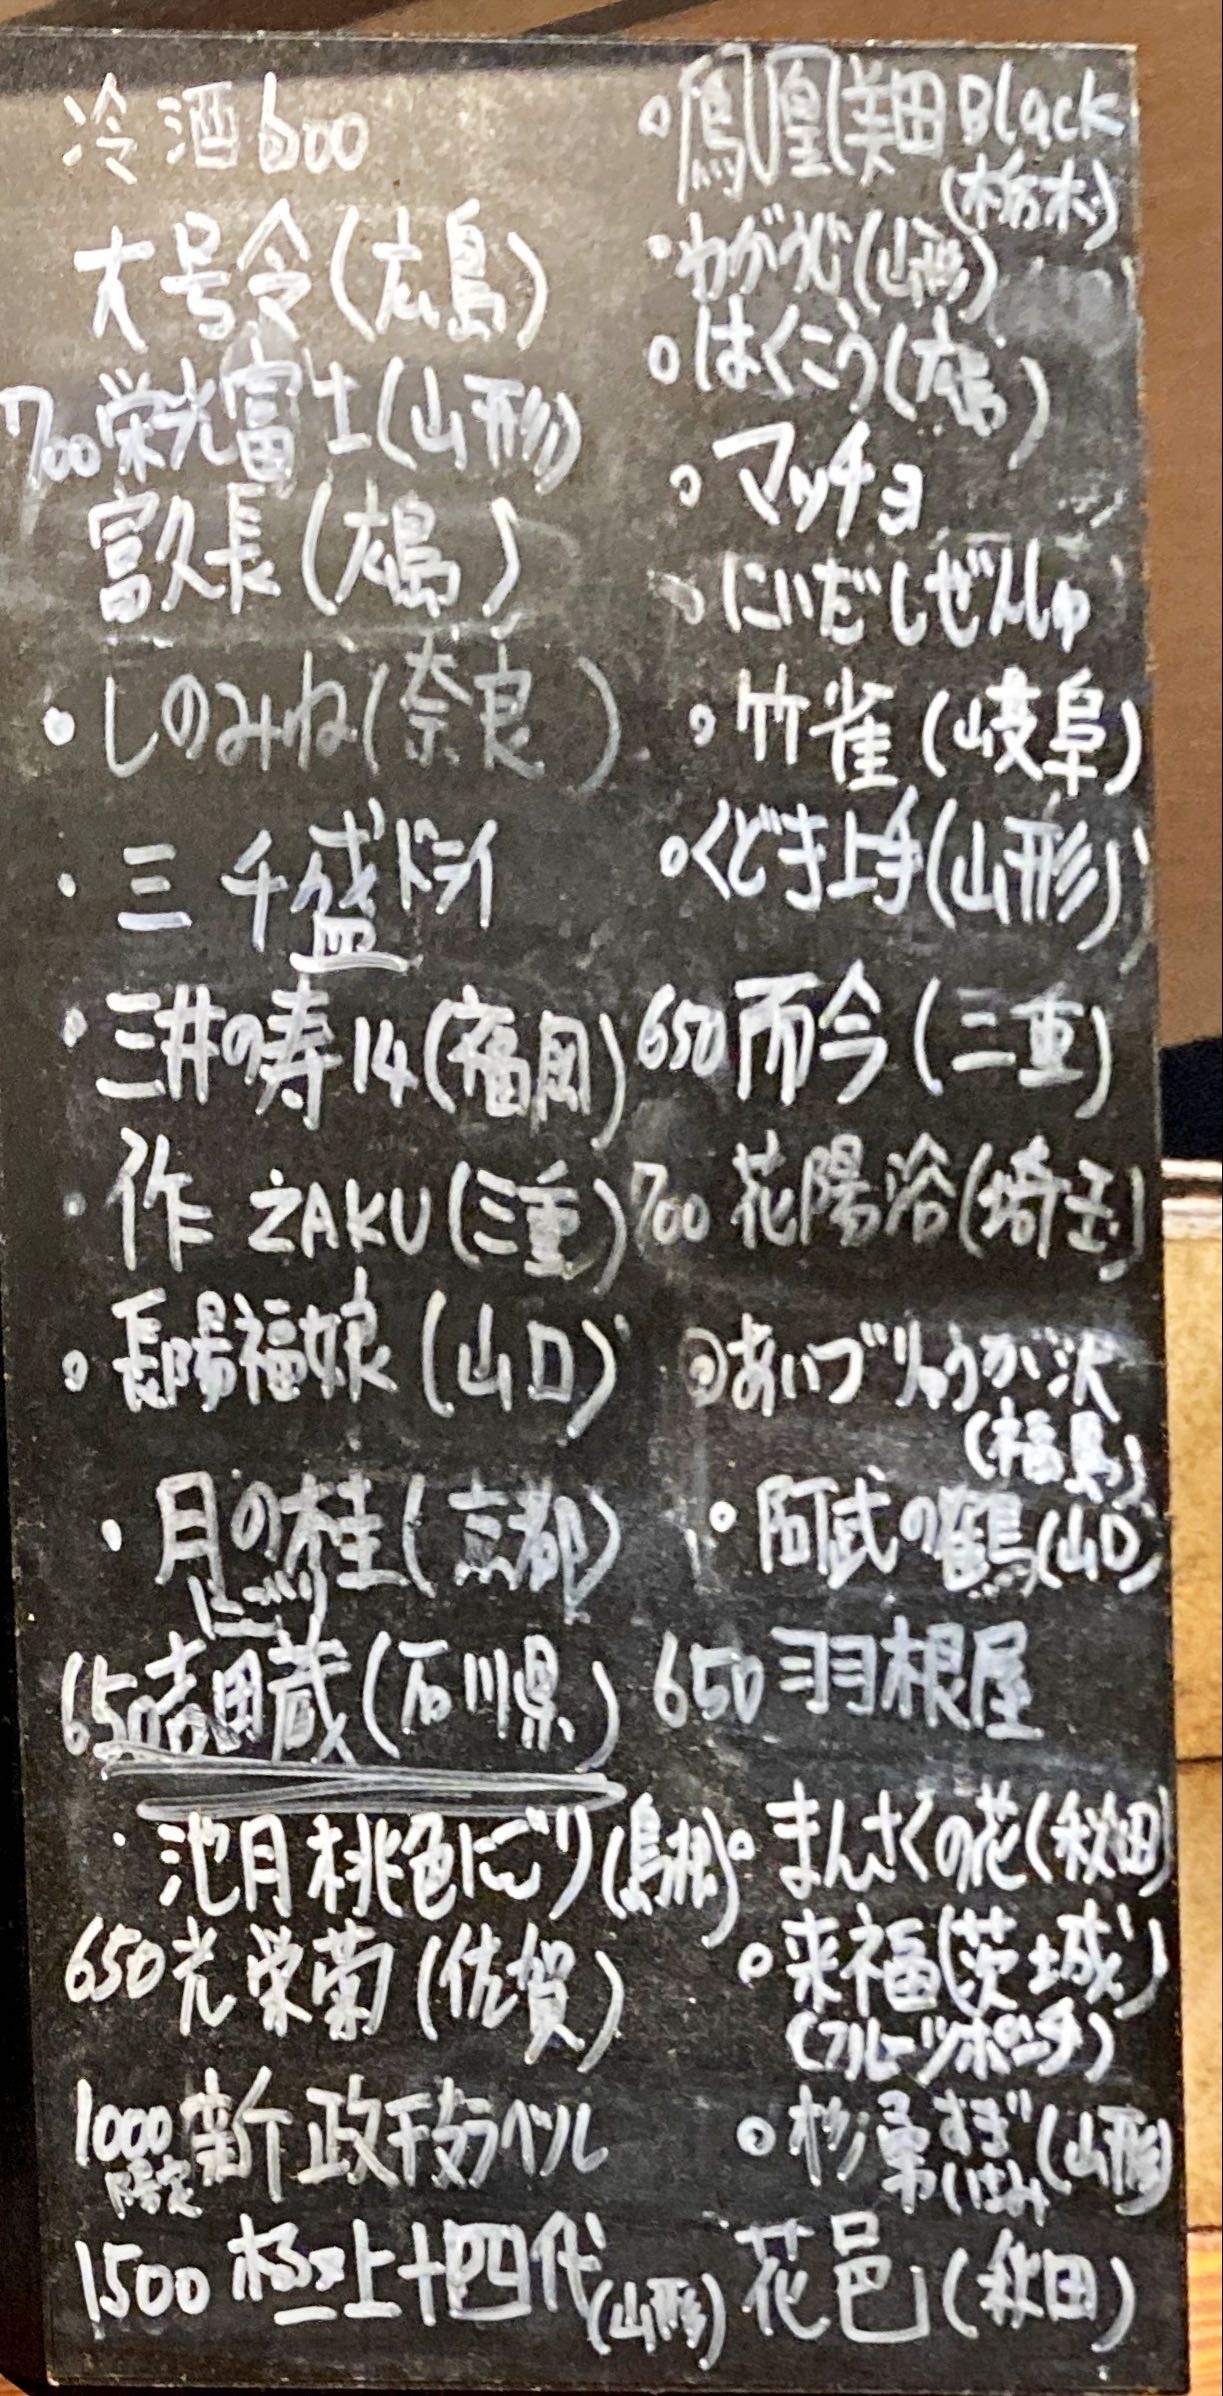 冷酒600
大号令(広島)
700栄光富士(山形)
富久長(広島)
・しのみね(奈良)
・三千盛ドライ
・三井の寿14(福岡)
・作 ZAKU(三重)
・長陽福娘(山口)
・月の桂(京都)
にごり
650吉田蔵(石川県)
・池月桃色にごり(島根)
650光栄菊(佐賀)
1000新政ラベル
限定
1500極上十四代(山形)
・鳳凰美田Black
(栃木)
・わがうじ(山形)
・はくこう(広島)
・マッチョ
・にいだしぜんしゅ
・竹雀(岐阜)
・くどき上手(山形)
650而今(三重)
700花陽浴(埼玉)
・あいづりゅうが沢
(福島)
・阿武の鶴(山口)
650羽根屋
・まんさくの花(秋田)
・来福(茨城)
(フルーツポンチ)
・杉勇すぎいさみ(山形)
花邑(秋田)